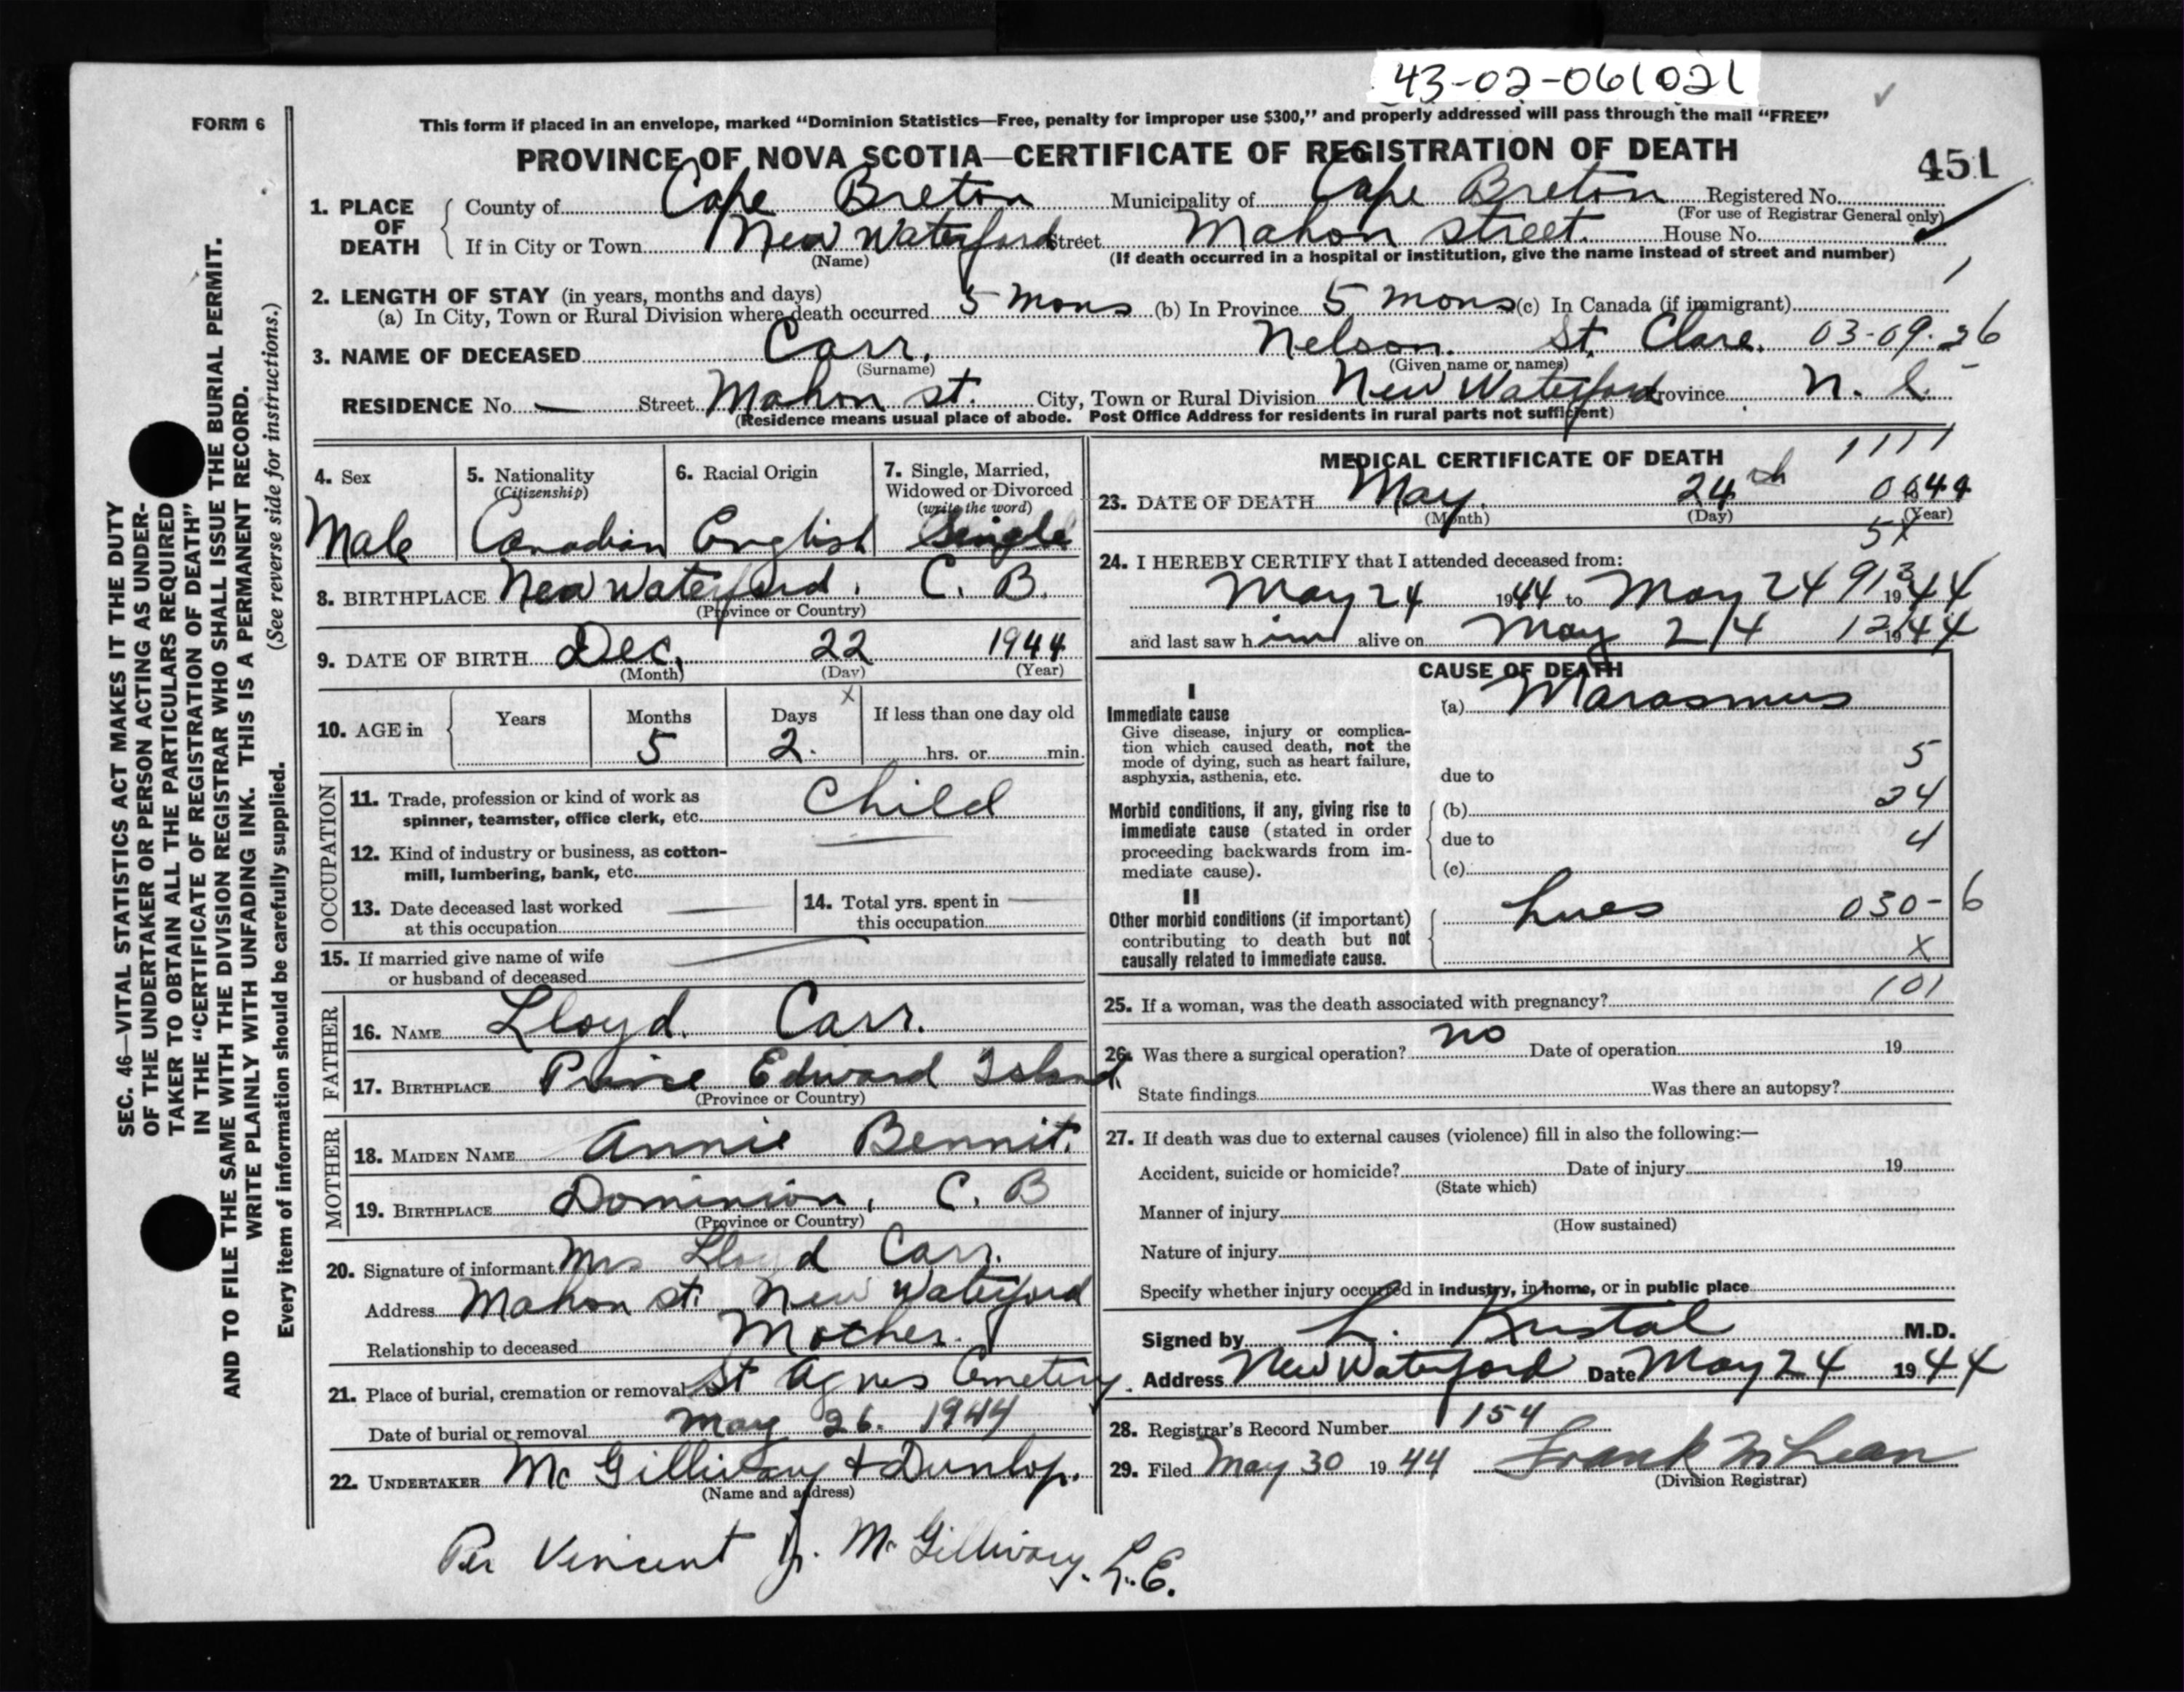 43-02-061021
FORM 6
This form if placed in an envelope, marked “Dominion Statistics—Free, penalty for improper use $300,” and properly addressed will pass through the mail “FREE”
PROVINCE OF NOVA SCOTIA—CERTIFICATE OF REGISTRATION OF DEATH
451
1. PLACE OF DEATH County of Cape Breton Municipality of Cape Breton Registered No.
(For use of Registrar General only)
If in City or Town New Waterford Street Mahon Street. House No.
(Name) (If death occurred in a hospital or institution, give the name instead of street and number)
2. LENGTH OF STAY (in years, months and days)
(a) In City, Town or Rural Division where death occurred 5 mons (b) In Province 5 mons (c) In Canada (if immigrant)
3. NAME OF DECEASED Carr. Nelson. St. Clare. 03-09-26
(Surname) (Given name or names)
RESIDENCE No. — Street Mahon St. City, Town or Rural Division New Waterford Province N. S.
(Residence means usual place of abode. Post Office Address for residents in rural parts not sufficient)
4. Sex
Male
5. Nationality
(Citizenship)
Canadian
6. Racial Origin
English
7. Single, Married,
Widowed or Divorced
(write the word)
Single
8. BIRTHPLACE New Waterford. C. B.
(Province or Country)
9. DATE OF BIRTH Dec. 22 1944
(Month) (Day) (Year)
10. AGE in Years Months Days x If less than one day old
5 2. hrs. or min.
OCCUPATION
11. Trade, profession or kind of work as
spinner, teamster, office clerk, etc. Child
12. Kind of industry or business, as cotton-
mill, lumbering, bank, etc.
13. Date deceased last worked
at this occupation
14. Total yrs. spent in
this occupation
15. If married give name of wife
or husband of deceased
FATHER
16. NAME Lloyd. Carr.
17. BIRTHPLACE Prince Edward Island.
(Province or Country)
MOTHER
18. MAIDEN NAME Annie Bennit.
19. BIRTHPLACE Dominion, C. B
(Province or Country)
20. Signature of informant Mrs Lloyd Carr.
Address Mahon St. New Waterford
Relationship to deceased Mother.
21. Place of burial, cremation or removal St Agnes Cemetery.
Date of burial or removal May 26. 1944
22. UNDERTAKER Mc Gillivary & Dunlop.
(Name and address)
Per Vincent J. Mc Gillivary. L.E.
MEDICAL CERTIFICATE OF DEATH 1111
23. DATE OF DEATH May. 24th 0644
(Month) (Day) (Year)
5X
24. I HEREBY CERTIFY that I attended deceased from:
May 24 1944 to May 24 913 1944
and last saw him alive on May 24 12 1944
CAUSE OF DEATH
I
Immediate cause
Give disease, injury or complica-
tion which caused death, not the
mode of dying, such as heart failure,
asphyxia, asthenia, etc.
(a) Marasmus
due to 5
Morbid conditions, if any, giving rise to
immediate cause (stated in order
proceeding backwards from im-
mediate cause).
(b) 24
due to 4
(c)
II
Other morbid conditions (if important)
contributing to death but not
causally related to immediate cause.
Lues 030-6
X
25. If a woman, was the death associated with pregnancy? 101
26. Was there a surgical operation? no Date of operation 19
State findings Was there an autopsy?
27. If death was due to external causes (violence) fill in also the following:—
Accident, suicide or homicide? Date of injury 19
(State which)
Manner of injury
(How sustained)
Nature of injury
Specify whether injury occurred in industry, in home, or in public place
Signed by L. Kristal M.D.
Address New Waterford Date May 24 1944
28. Registrar's Record Number 154
29. Filed May 30 1944 Frank McLean
(Division Registrar)
SEC. 46—VITAL STATISTICS ACT MAKES IT THE DUTY
OF THE UNDERTAKER OR PERSON ACTING AS UNDER-
TAKER TO OBTAIN ALL THE PARTICULARS REQUIRED
IN THE “CERTIFICATE OF REGISTRATION OF DEATH”
AND TO FILE THE SAME WITH THE DIVISION REGISTRAR WHO SHALL ISSUE THE BURIAL PERMIT.
WRITE PLAINLY WITH UNFADING INK. THIS IS A PERMANENT RECORD.
(See reverse side for instructions.)
Every item of information should be carefully supplied.